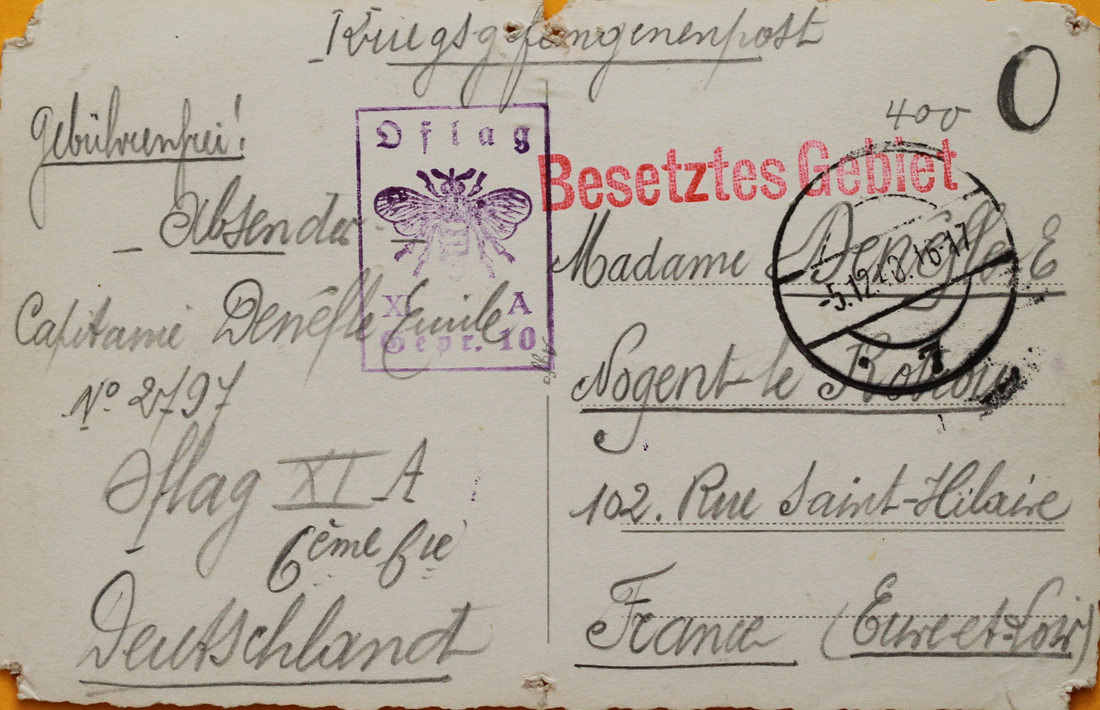 Kriegsgefangenenpost
Gebührenfrei!
Absender
Capitaine Denéfle Emile
N° 2797
Oflag XI A
6ème Cie
Deutschland
Oflag
XI A
Gepr. 10
Besetztes Gebiet
400
O
5.12.40.16-17
Madame Denéfle E
Nogent-le Rotrou
102. Rue Saint-Hilaire
France (Eure et-Loir)